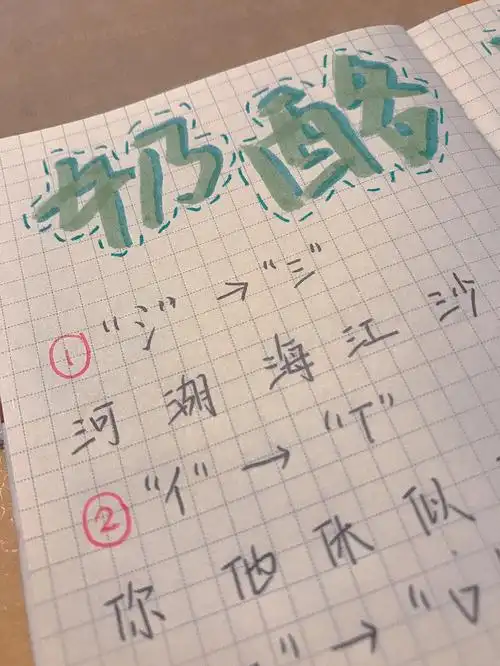 奶酪
① "氵" → "三"
河 湖 海 江 沙
② "亻" → "T"
你 他 休 似
" → "